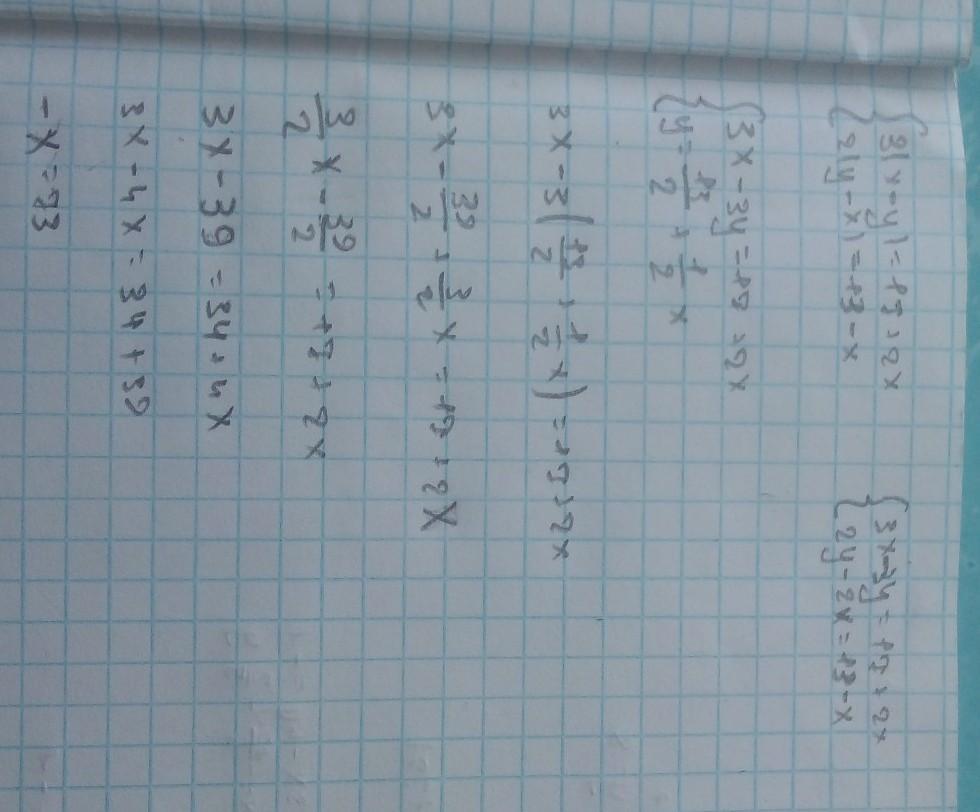 { 3(x-y) = 17 + 2x
{ 2(y-x) = 13 - x
{ 3x - 3y = 17 + 2x
{ 2y - 2x = 13 - x
{ 3x - 3y = 17 + 2x
{ y = 13/2 + 1/2 x
3x - 3(13/2 + 1/2 x) = 17 + 2x
3x - 39/2 + 3/2 x = 17 + 2x
3/2 x - 39/2 = 17 + 2x
3x - 39 = 34 + 4x
3x - 4x = 34 + 39
-x = 73